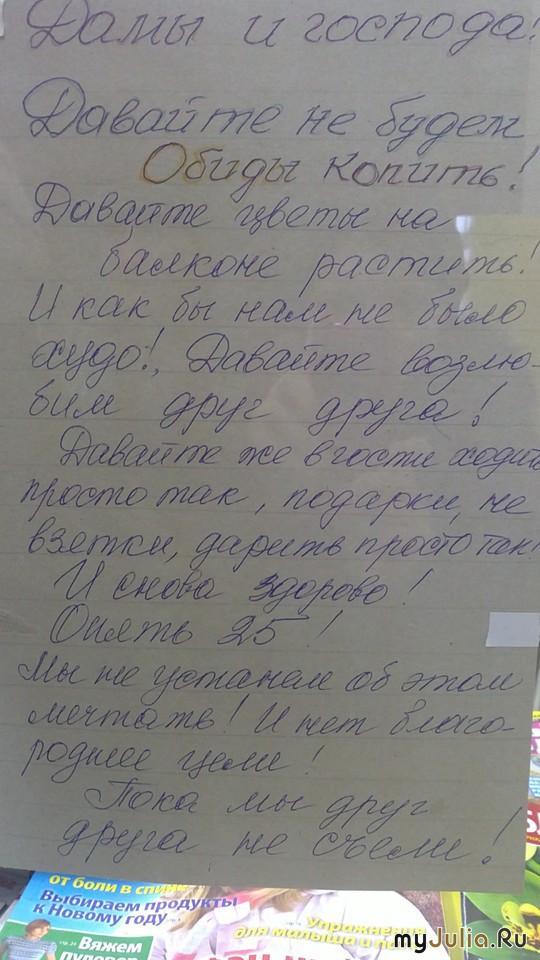 Дамы и господа!
Давайте не будем
Обиды копить!
Давайте цветы на
балконе растить!
И как бы нам не было
худо!, Давайте возлю-
бим друг друга!
Давайте же в гости ходить
просто так, подарки, не
взетки, дарить просто так!
И снова здорово!
Опять 25!
Мы не устанем об этом
мечтать! И нет благо-
роднее цели!
Пока мы друг
друга не съели!
от боли в спине
Выбираем продукты
к Новому году...
Упражнения
для малыша и
стр. 24
Вяжем
пуловер
myJulia.Ru